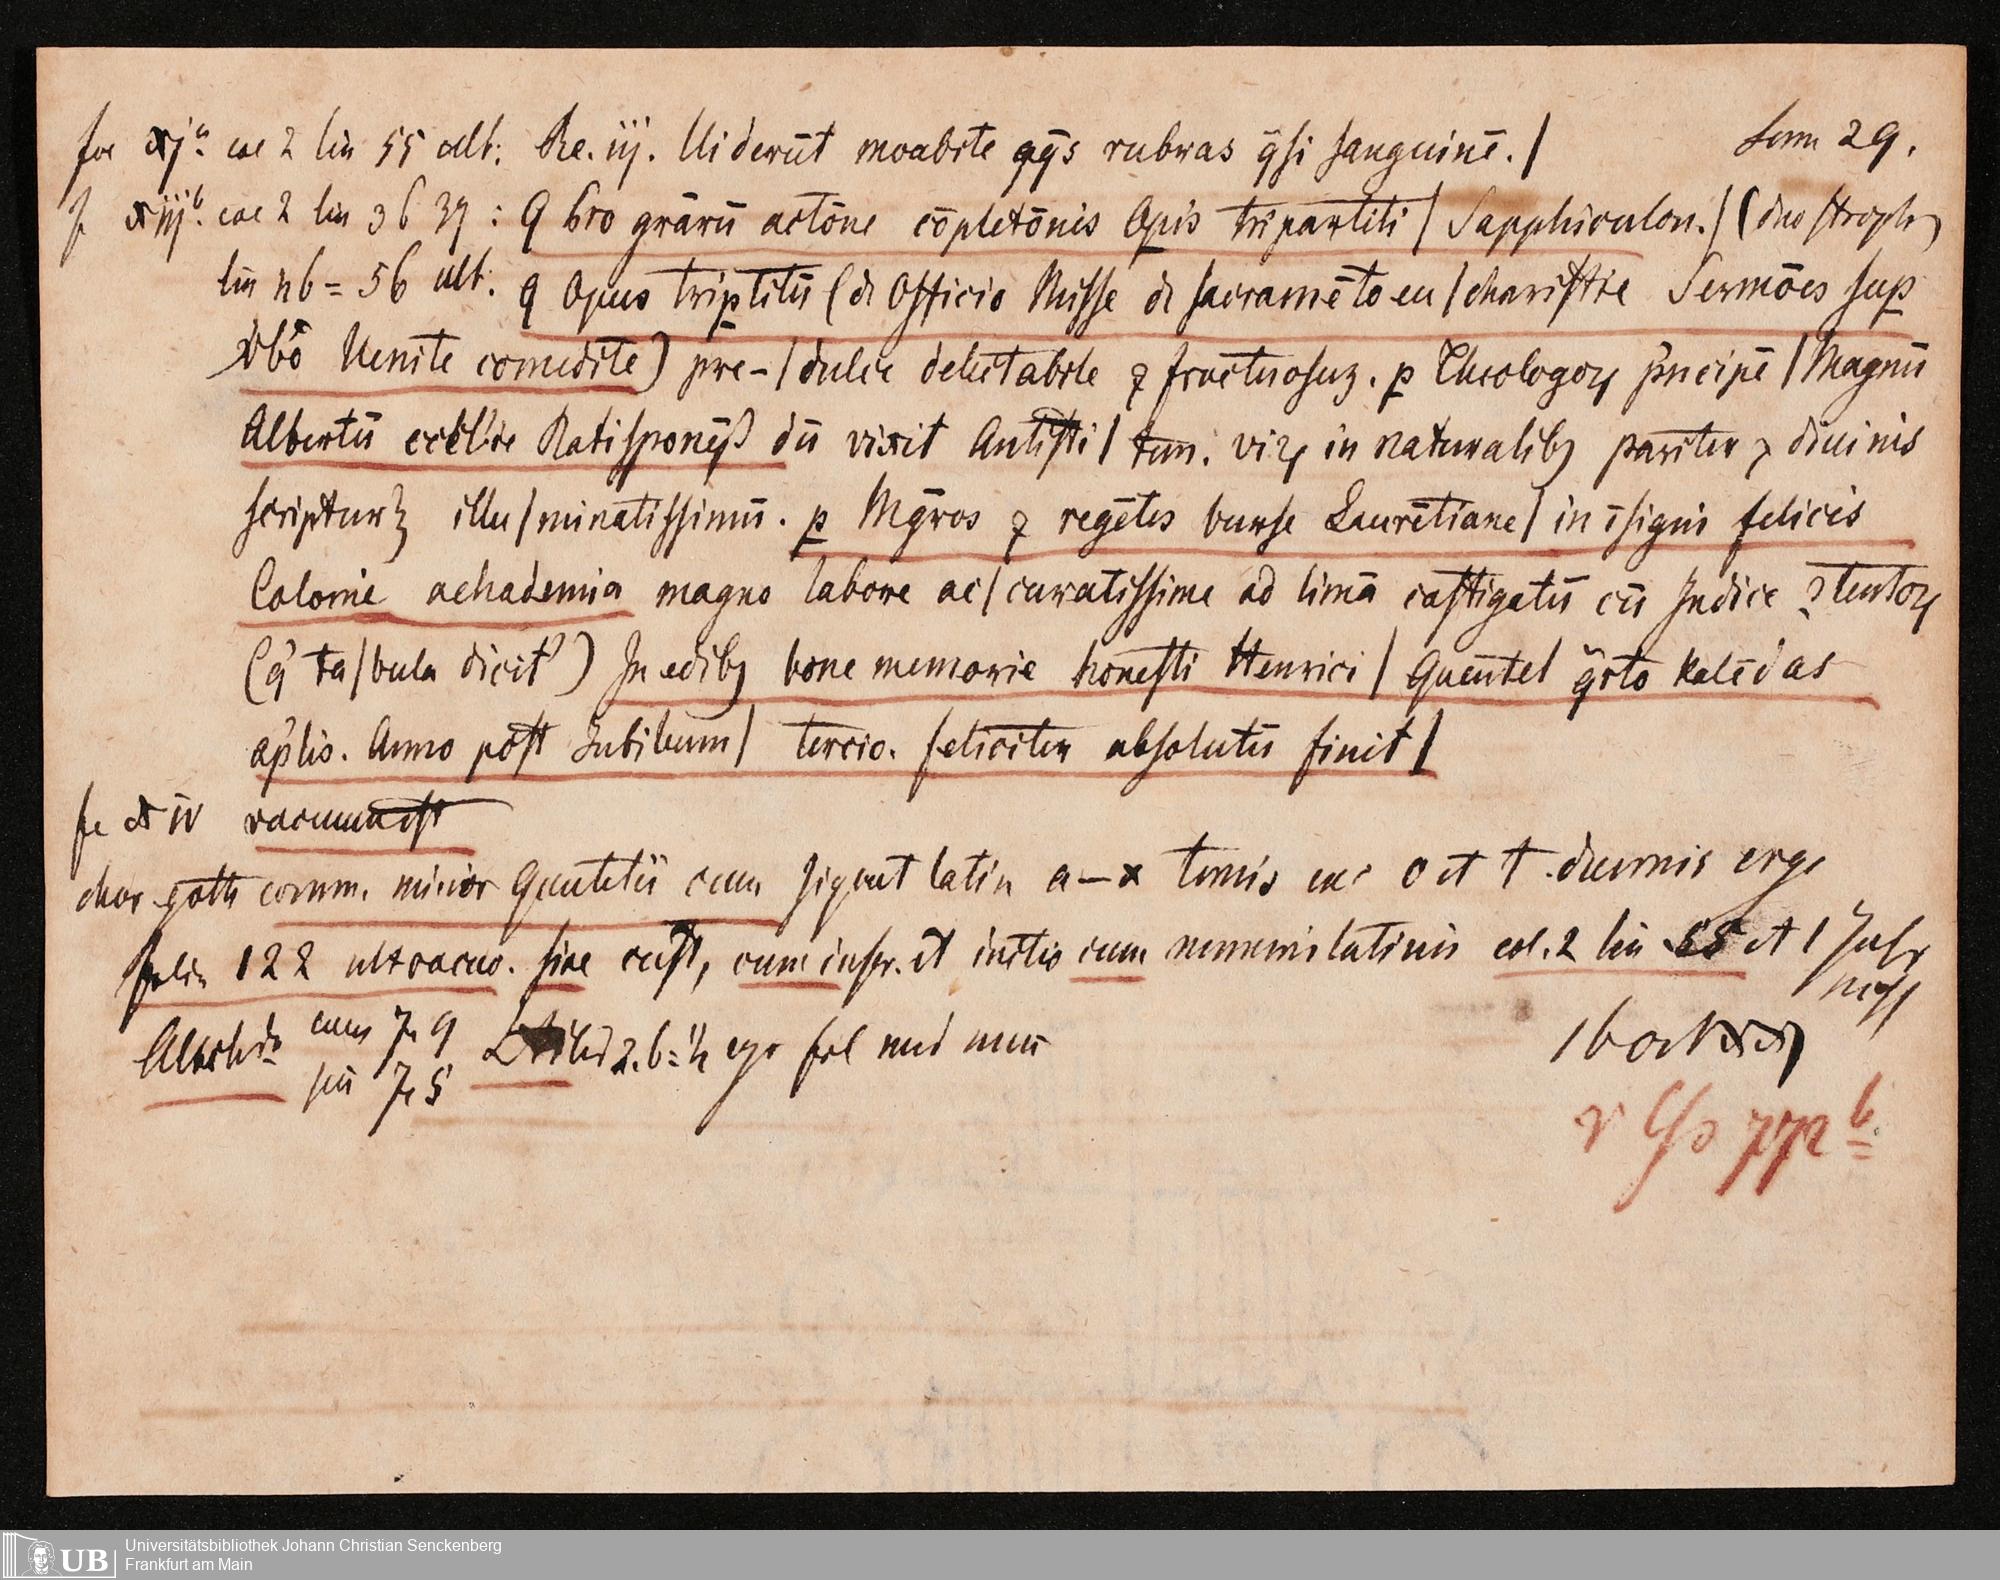 fol xjª. col 2 lin 55 ult: Re. iij. Uiderūt moabite aq̄s rubras q̄si sanguinē. / Serm 29.
f xiijᵇ. col 2 lin 36 37 : q bro grārū actōne cōpletōnis Opis tripartiti / Sapphiculon. / (duo stroph)
lin 46 = 56 ult: q Opus triptitū (de Officio Misse de sacramēto eu / charistie Sermōes sup
vbō Uenite comedite) pre- / dulce delectabile ⁊ fructuosuꝫ. p Theologoꝝ pͥncipē / Magnū
Albertū eccl'ie Ratisponēß dū vixit Antisti / tem. viꝝ in naturalibꝫ pariter ⁊ diuinis
scripturꝫ illu / minatissimū. p Mgr̄os ⁊ regētes burse Laurētiane / in īsigni felicis
Colonie achademia magno labore ac / curatissime ad limā castigatū cū Indice ꝯtentoꝝ
(q̇ ta / bula dicit') In edibꝫ bone memorie honesti Henrici / Quentel q̄rto kalēdas
ap'lis. Anno post Jubileum / tercio. feliciter absolutū finit /
fc xiv vacuum est
char goth comm. minor Quentelii cum signat latin a – x ternis exc o et t duernis ergo
folia 122 ult vacuo. sine cust, cum inscr. et initio cum numeris latinis col. 2 lin 55 et
cum 7, 9
sin 7, 5
v C/o 772 ᵇ
Universitätsbibliothek Johann Christian Senckenberg
UB Frankfurt am Main